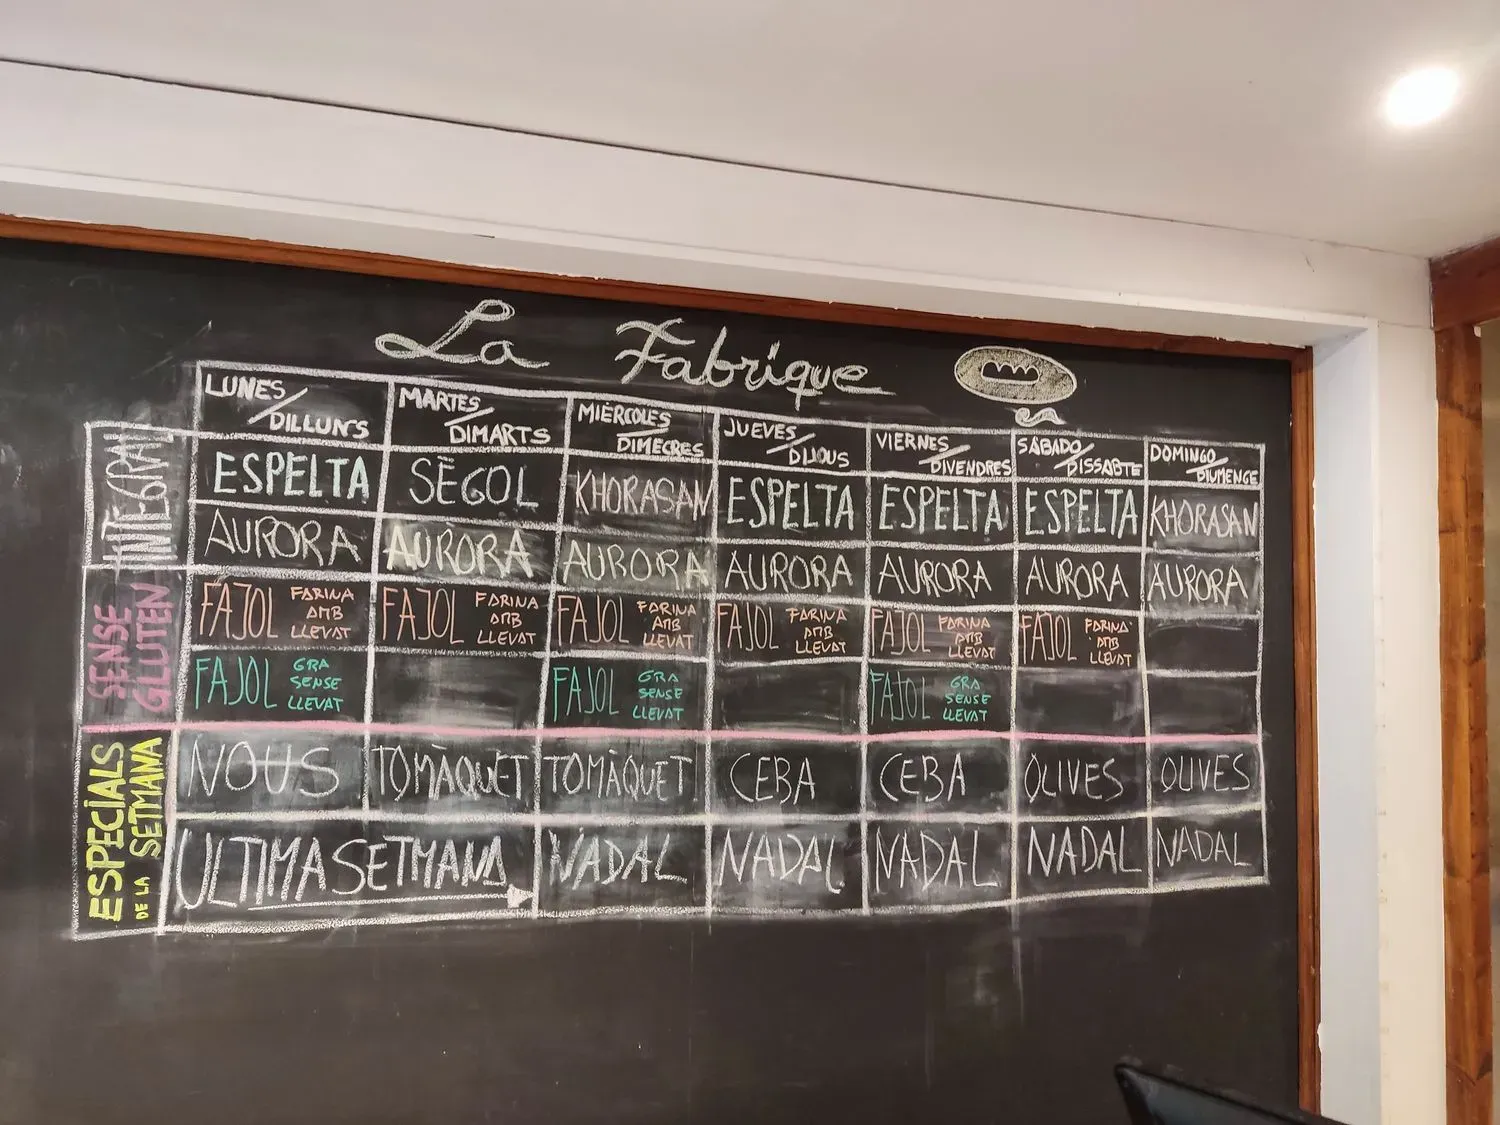 La Fabrique
LUNES/DILLUNS MARTES/DIMARTS MIÈRCOLES/DIMECRES JUEVES/DIJOUS VIERNES/DIVENDRES SÁBADO/DISSABTE DOMINGO/DIUMENGE
INTEGRAL
ESPELTA SÈGOL KHORASAN ESPELTA ESPELTA ESPELTA KHORASAN
AURORA AURORA AURORA AURORA AURORA AURORA AURORA
SENSE
GLUTEN
FAJOL FARINA AMB LLEVAT FAJOL FARINA AMB LLEVAT FAJOL FARINA AMB LLEVAT FAJOL FARINA AMB LLEVAT FAJOL FARINA AMB LLEVAT FAJOL FARINA AMB LLEVAT
FAJOL GRA SENSE LLEVAT FAJOL GRA SENSE LLEVAT FAJOL GRA SENSE LLEVAT
ESPECIALS
DE LA SETMANA
NOUS TOMÀQUET TOMÀQUET CEBA CEBA OLIVES OLIVES
ULTIMA SETMANA NADAL NADAL NADAL NADAL NADAL